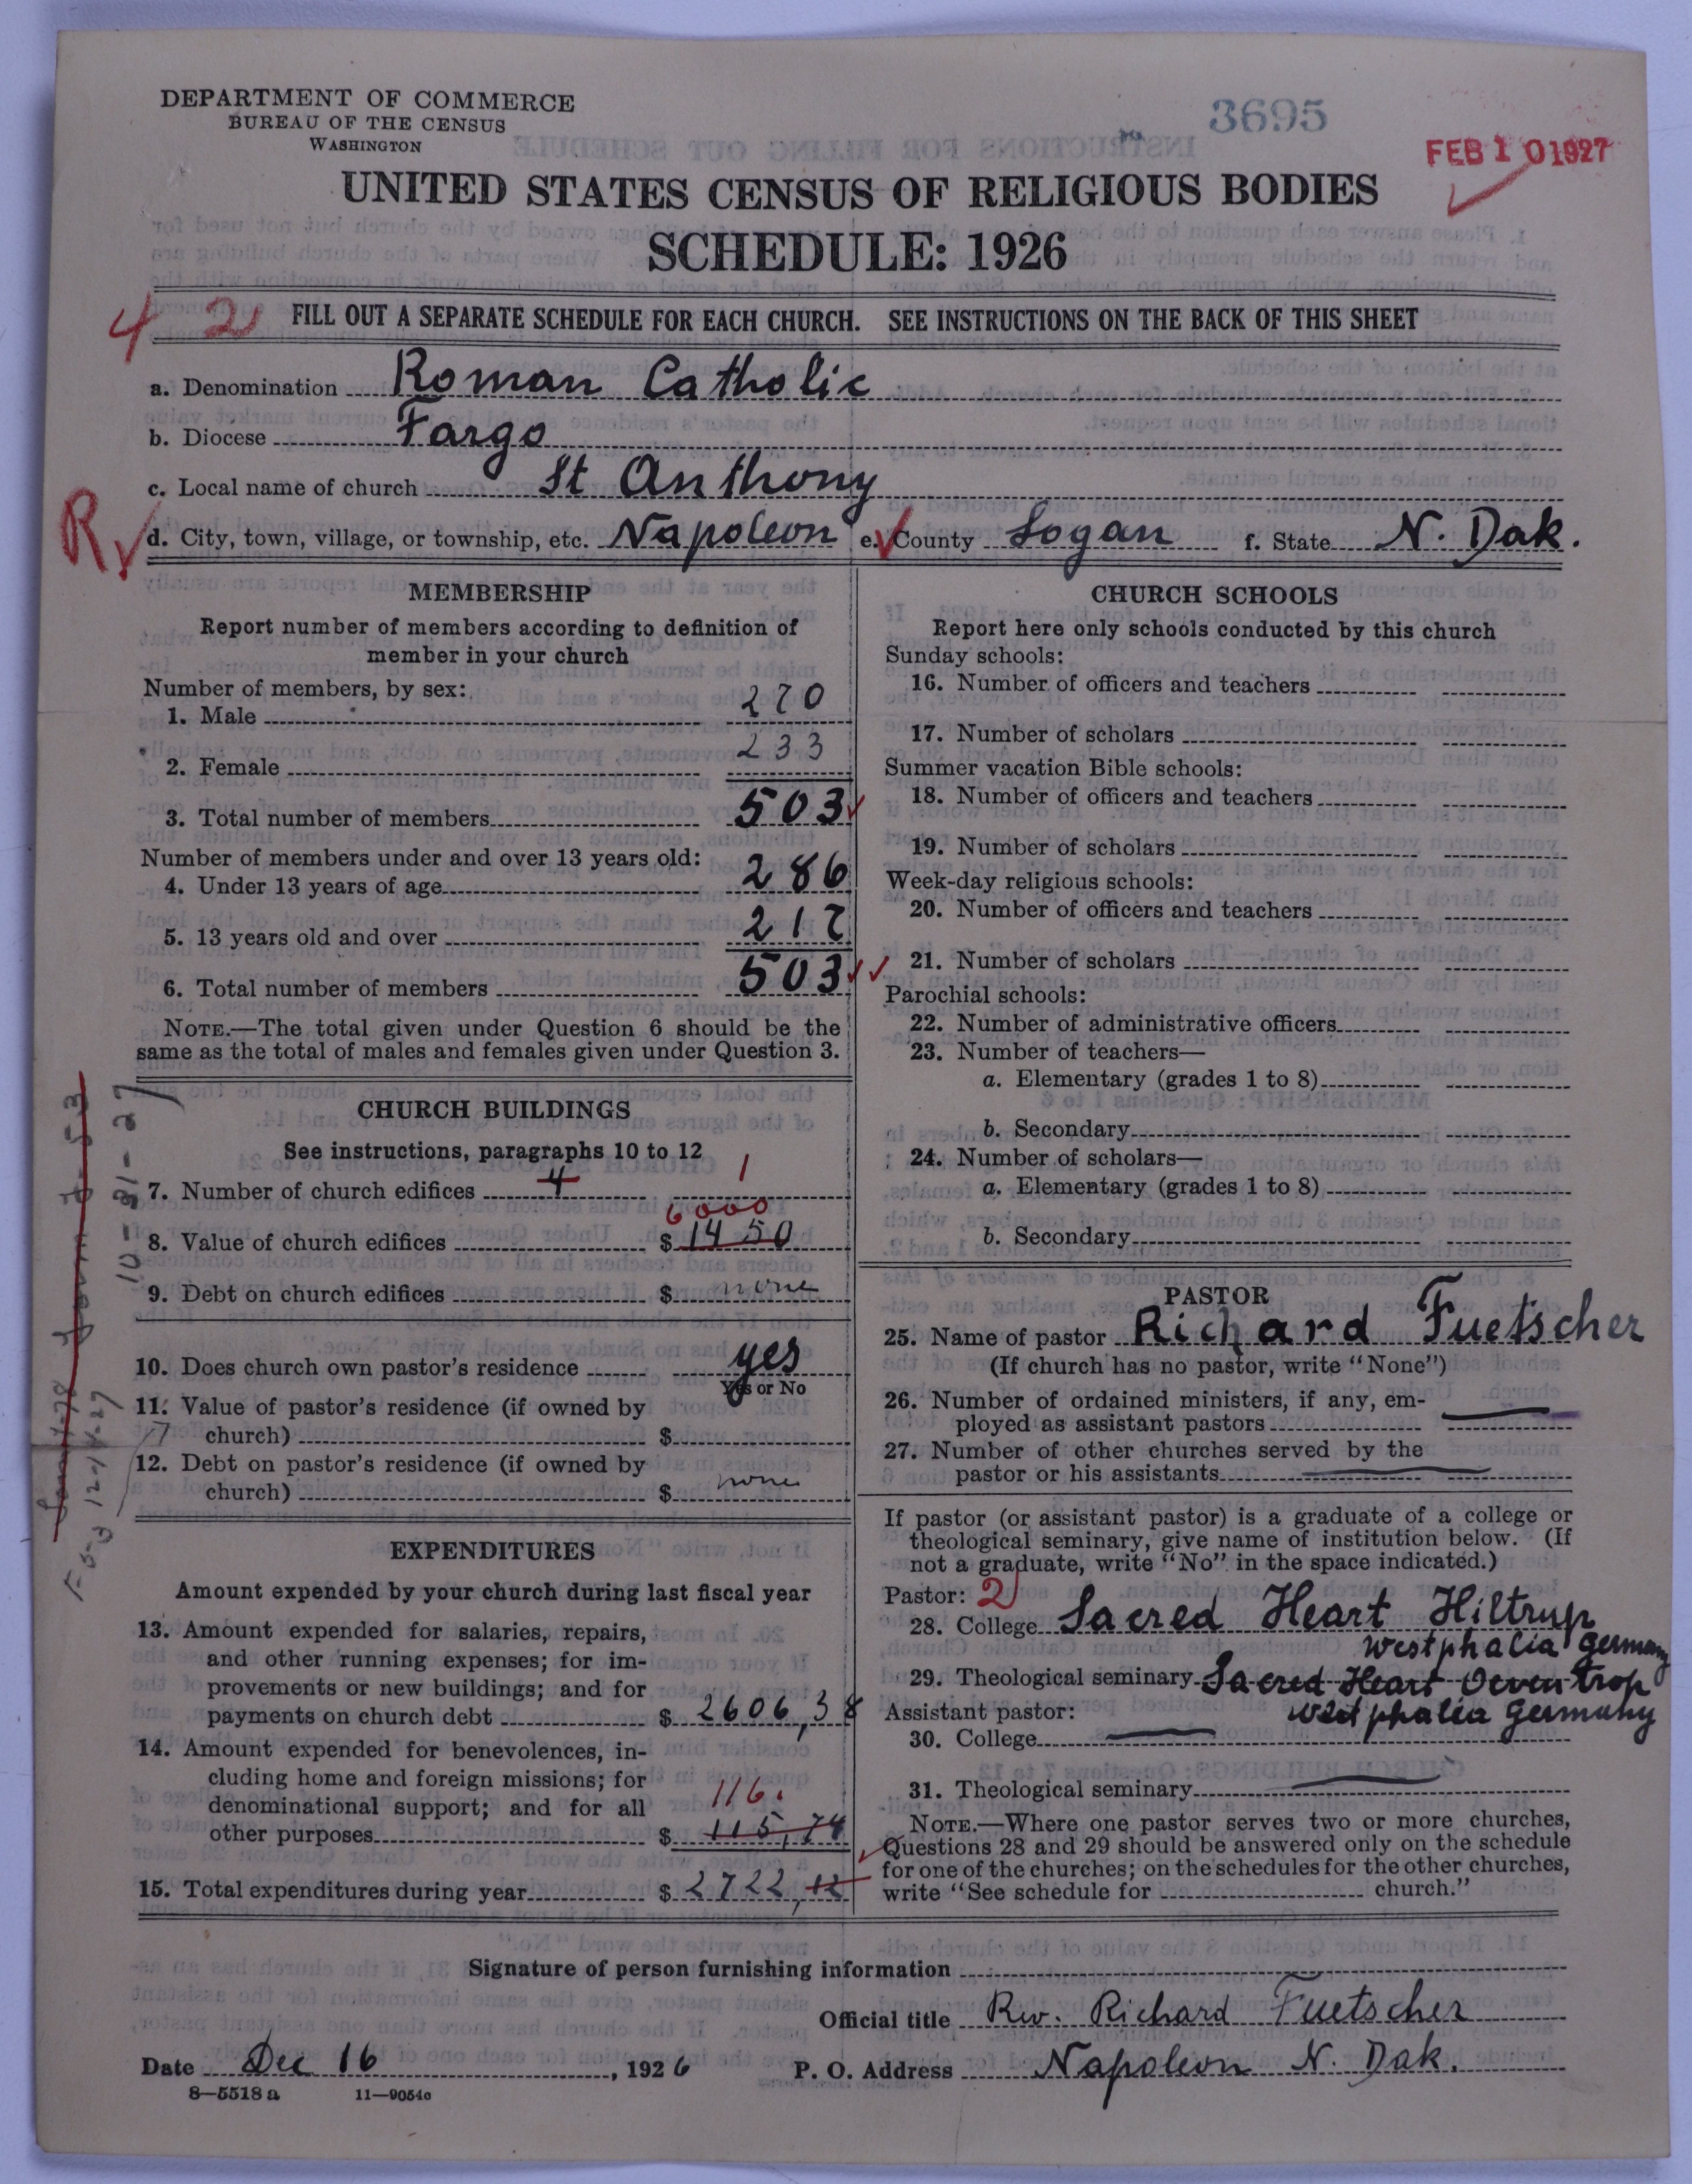 DEPARTMENT OF COMMERCE
BUREAU OF THE CENSUS
WASHINGTON
3695
FEB 10 1927
UNITED STATES CENSUS OF RELIGIOUS BODIES
SCHEDULE: 1926
4 2 FILL OUT A SEPARATE SCHEDULE FOR EACH CHURCH. SEE INSTRUCTIONS ON THE BACK OF THIS SHEET
a. Denomination Roman Catholic
b. Diocese Fargo
c. Local name of church St Anthony
R d. City, town, village, or township, etc. Napoleon e. County Logan f. State N. Dak.
MEMBERSHIP
Report number of members according to definition of
member in your church
Number of members, by sex:
1. Male 270
2. Female 233
3. Total number of members 503
Number of members under and over 13 years old:
4. Under 13 years of age 286
5. 13 years old and over 217
6. Total number of members 503
NOTE.—The total given under Question 6 should be the
same as the total of males and females given under Question 3.
CHURCH BUILDINGS
See instructions, paragraphs 10 to 12
7. Number of church edifices 4 1
6000
8. Value of church edifices $ 1450
9. Debt on church edifices $ none
10. Does church own pastor's residence yes
Yes or No
11. Value of pastor's residence (if owned by
church) $
12. Debt on pastor's residence (if owned by
church) $ none
10-31-27
EXPENDITURES
Amount expended by your church during last fiscal year
13. Amount expended for salaries, repairs,
and other running expenses; for im-
provements or new buildings; and for
payments on church debt $ 2606,38
14. Amount expended for benevolences, in-
cluding home and foreign missions; for
denominational support; and for all
116.
other purposes $ 115,74
15. Total expenditures during year $ 2722,12
CHURCH SCHOOLS
Report here only schools conducted by this church
Sunday schools:
16. Number of officers and teachers
17. Number of scholars
Summer vacation Bible schools:
18. Number of officers and teachers
19. Number of scholars
Week-day religious schools:
20. Number of officers and teachers
21. Number of scholars
Parochial schools:
22. Number of administrative officers
23. Number of teachers—
a. Elementary (grades 1 to 8)
b. Secondary
24. Number of scholars—
a. Elementary (grades 1 to 8)
b. Secondary
PASTOR
25. Name of pastor Richard Fuetscher
(If church has no pastor, write "None")
26. Number of ordained ministers, if any, em-
ployed as assistant pastors —
27. Number of other churches served by the
pastor or his assistants —
If pastor (or assistant pastor) is a graduate of a college or
theological seminary, give name of institution below. (If
not a graduate, write "No" in the space indicated.)
Pastor: 2
28. College Sacred Heart Hiltrup
Westphalia Germany
29. Theological seminary Sacred Heart Oeventrop
Westphalia Germany
Assistant pastor:
30. College —
31. Theological seminary —
NOTE.—Where one pastor serves two or more churches,
Questions 28 and 29 should be answered only on the schedule
for one of the churches; on the schedules for the other churches,
write "See schedule for church."
Signature of person furnishing information
Official title Rev. Richard Fuetscher
Date Dec 16, 1926 P. O. Address Napoleon N. Dak.
8—5518 a 11—9054c